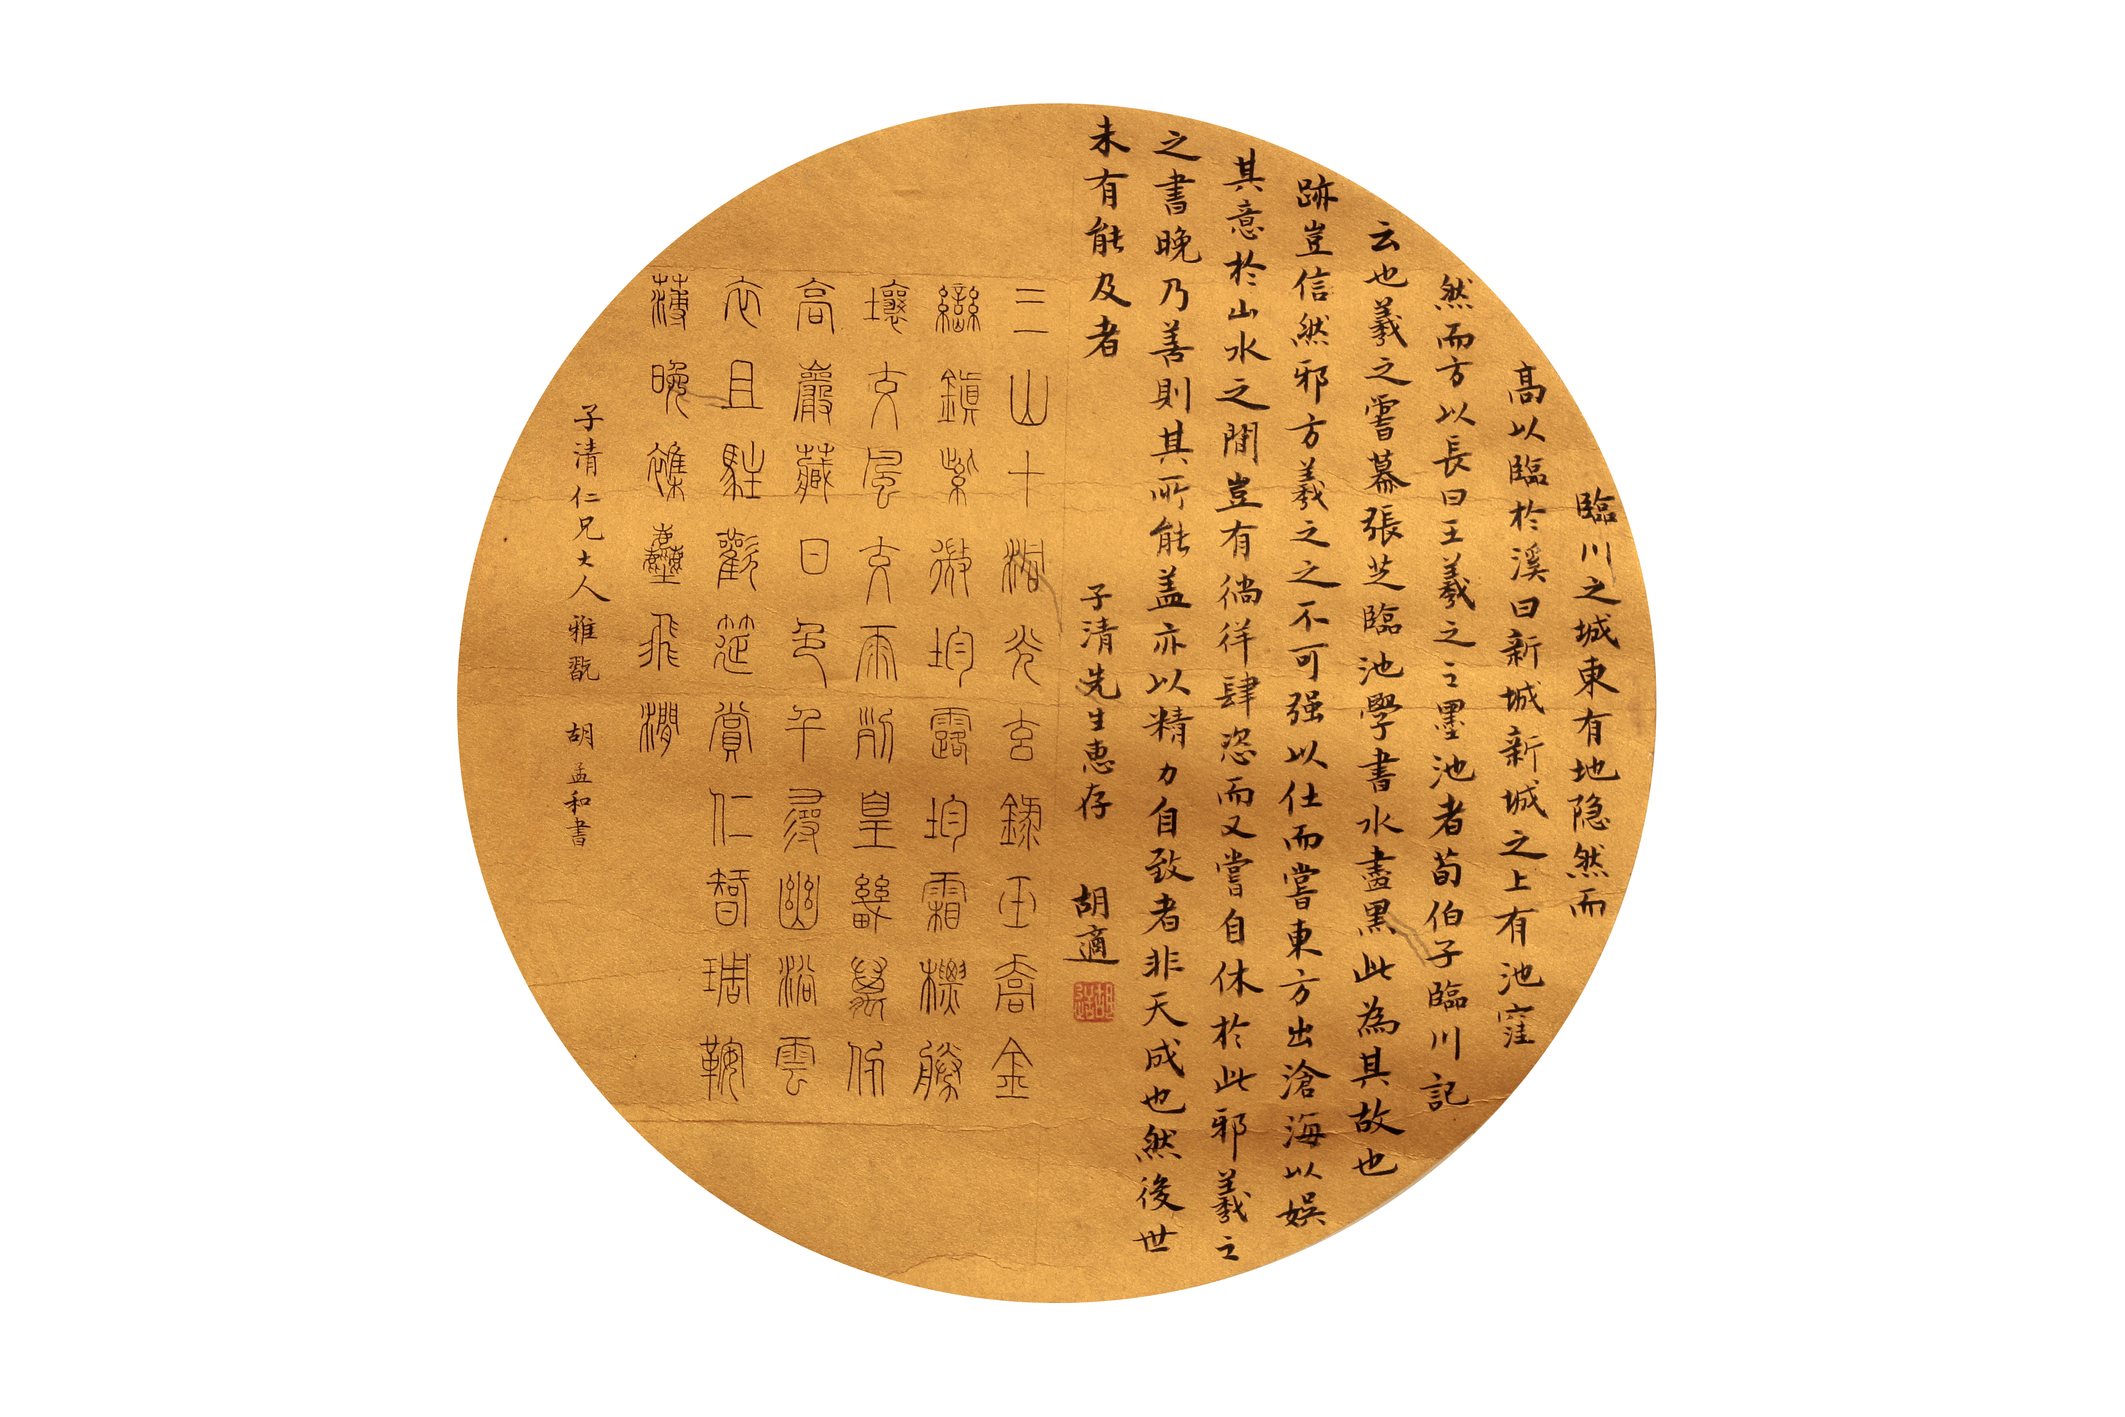 臨川之城東有地隐然而
高以臨於溪曰新城新城之上有池窪
然而方以長曰王羲之之墨池者荀伯子臨川記
云也羲之嘗慕張芝臨池學書水盡黑此為其故也
跡豈信然邪方羲之之不可强以仕而嘗東方出滄海以娛
其意於山水之間豈有徜徉肆恣而又嘗自休於此邪羲之
之書晚乃善則其所能盖亦以精力自致者非天成也然後世
未有能及者
子清先生惠存 胡適
三山十洞光玄籙玉嶠金
巒鎮紫微均露均霜標勝
壤交風交雨列皇畿萬仞
高巖藏日色千尋幽浴雲
衣且駐歡筵賞仁智琱鞍
薄晚雜塵飛澗
子清仁兄大人雅翫 胡孟和書